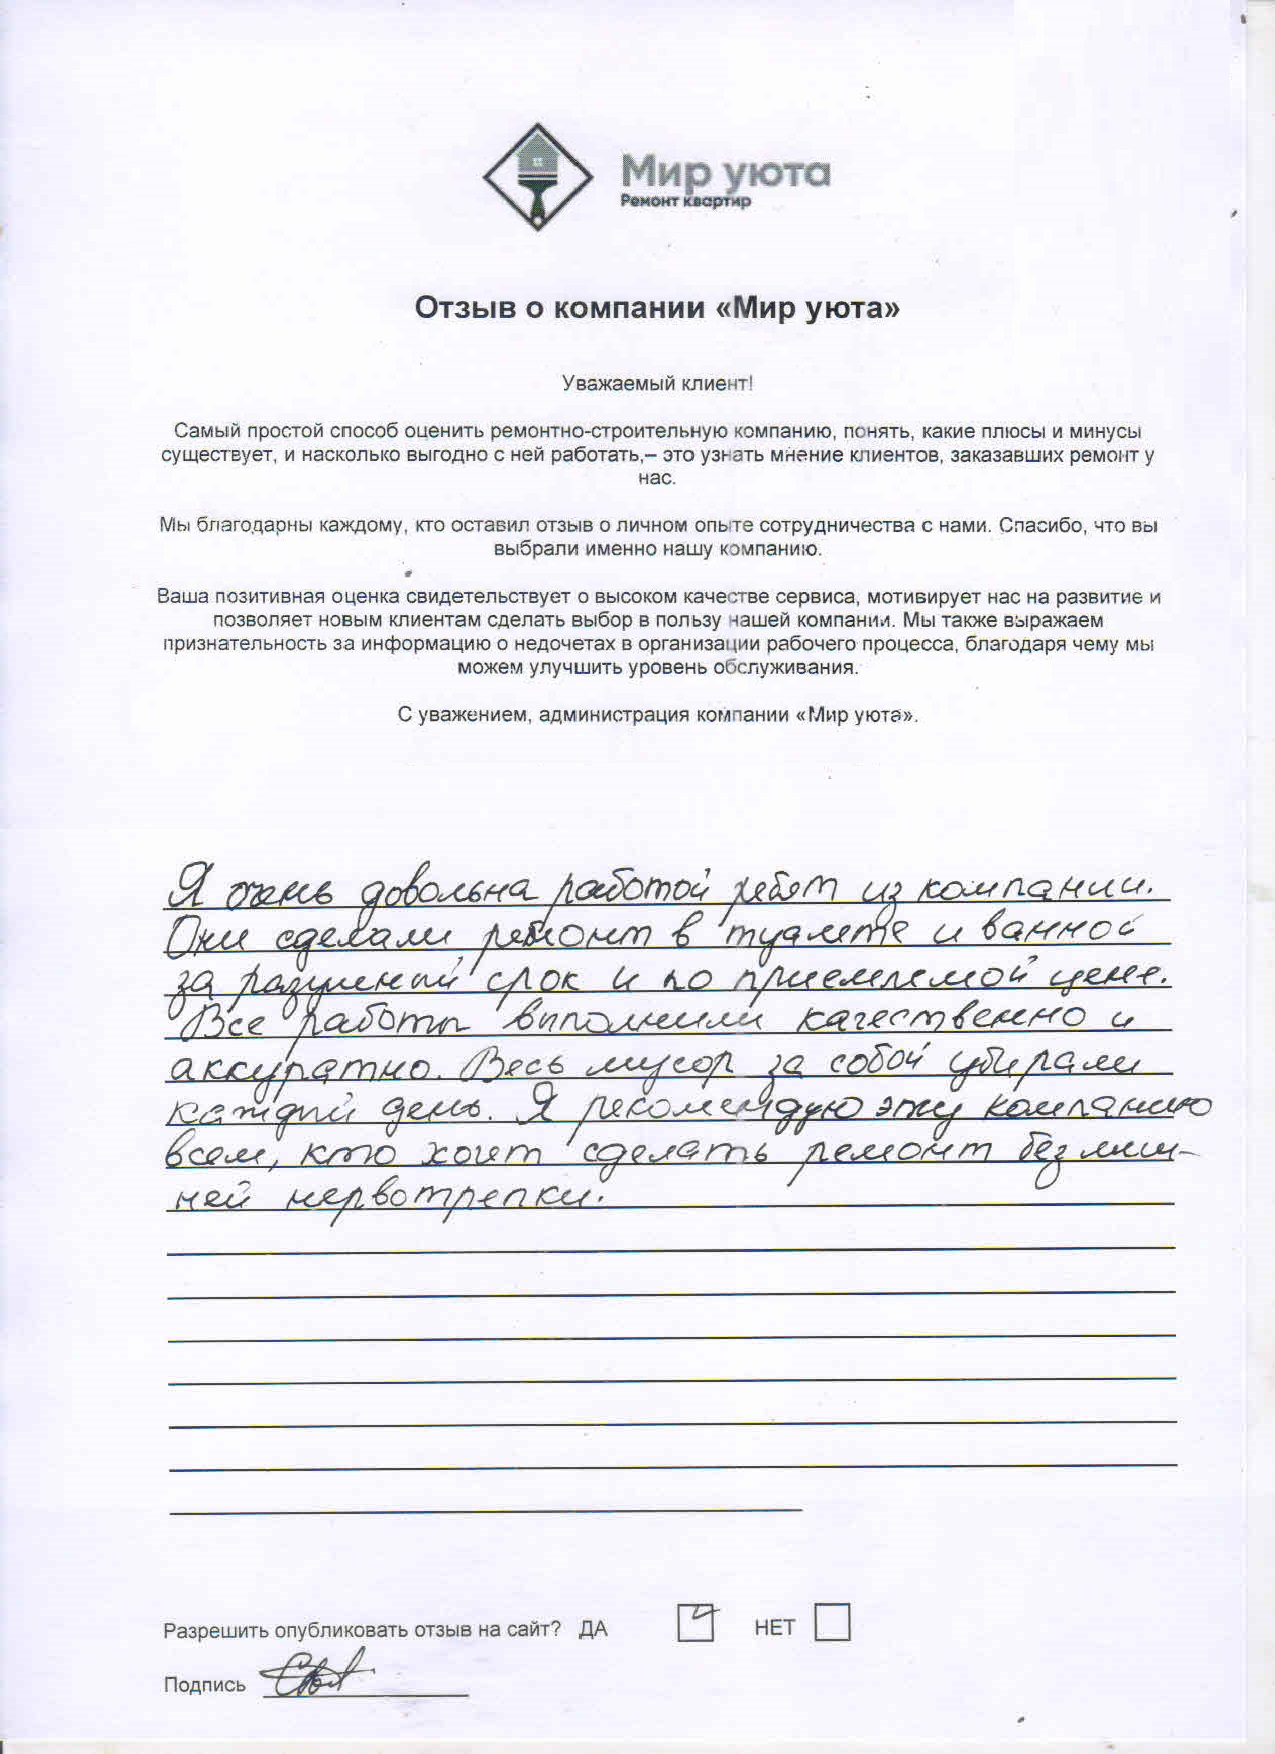 Мир уюта
Ремонт квартир
Отзыв о компании «Мир уюта»
Уважаемый клиент!
Самый простой способ оценить ремонтно-строительную компанию, понять, какие плюсы и минусы
существует, и насколько выгодно с ней работать,– это узнать мнение клиентов, заказавших ремонт у
нас.
Мы благодарны каждому, кто оставил отзыв о личном опыте сотрудничества с нами. Спасибо, что вы
выбрали именно нашу компанию.
Ваша позитивная оценка свидетельствует о высоком качестве сервиса, мотивирует нас на развитие и
позволяет новым клиентам сделать выбор в пользу нашей компании. Мы также выражаем
признательность за информацию о недочетах в организации рабочего процесса, благодаря чему мы
можем улучшить уровень обслуживания.
С уважением, администрация компании «Мир уюта».
Я очень довольна работой ребят из компании.
Они сделали ремонт в туалете и ванной
за разумный срок и по приемлемой цене.
Все работы выполнили качественно и
аккуратно. Весь мусор за собой убирали
каждый день. Я рекомендую эту компанию
всем, кто хочет сделать ремонт без лиш-
ней нервотрепки.
Разрешить опубликовать отзыв на сайт? ДА НЕТ
Подпись